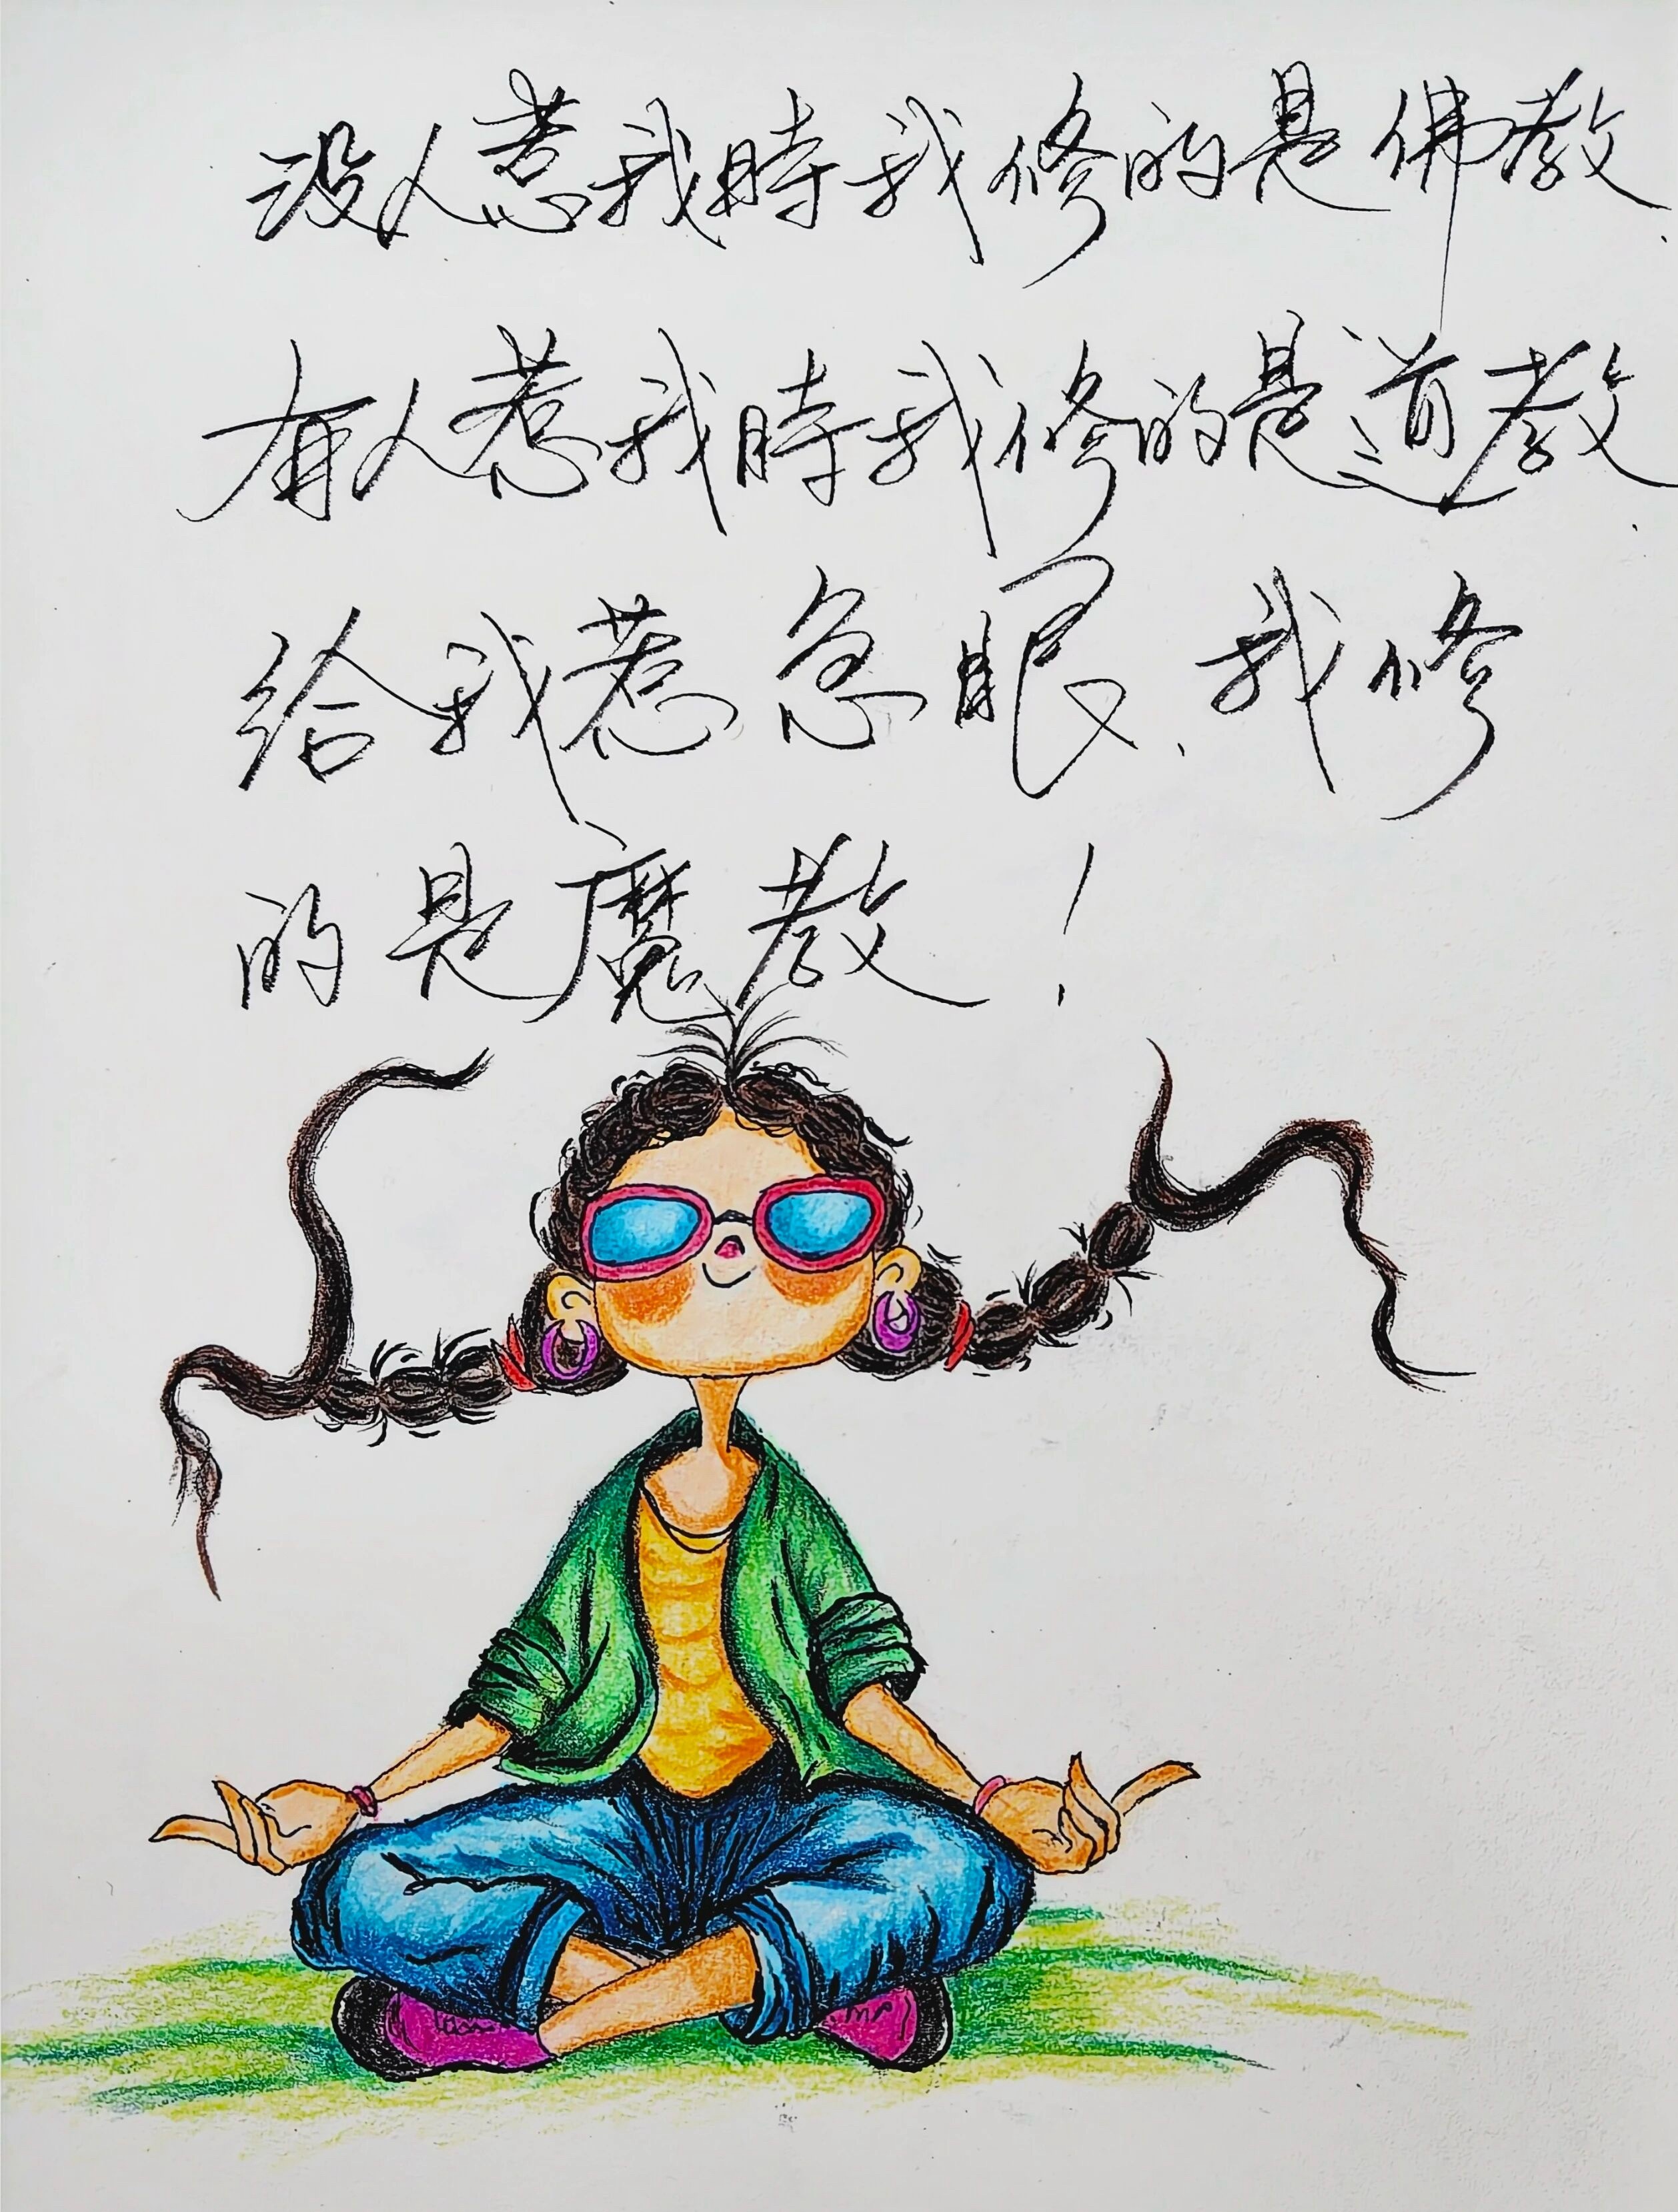 没人惹我時我修的是佛教.
有人惹我時我修的是道教.
给我惹急眼、我修
的是魔教!